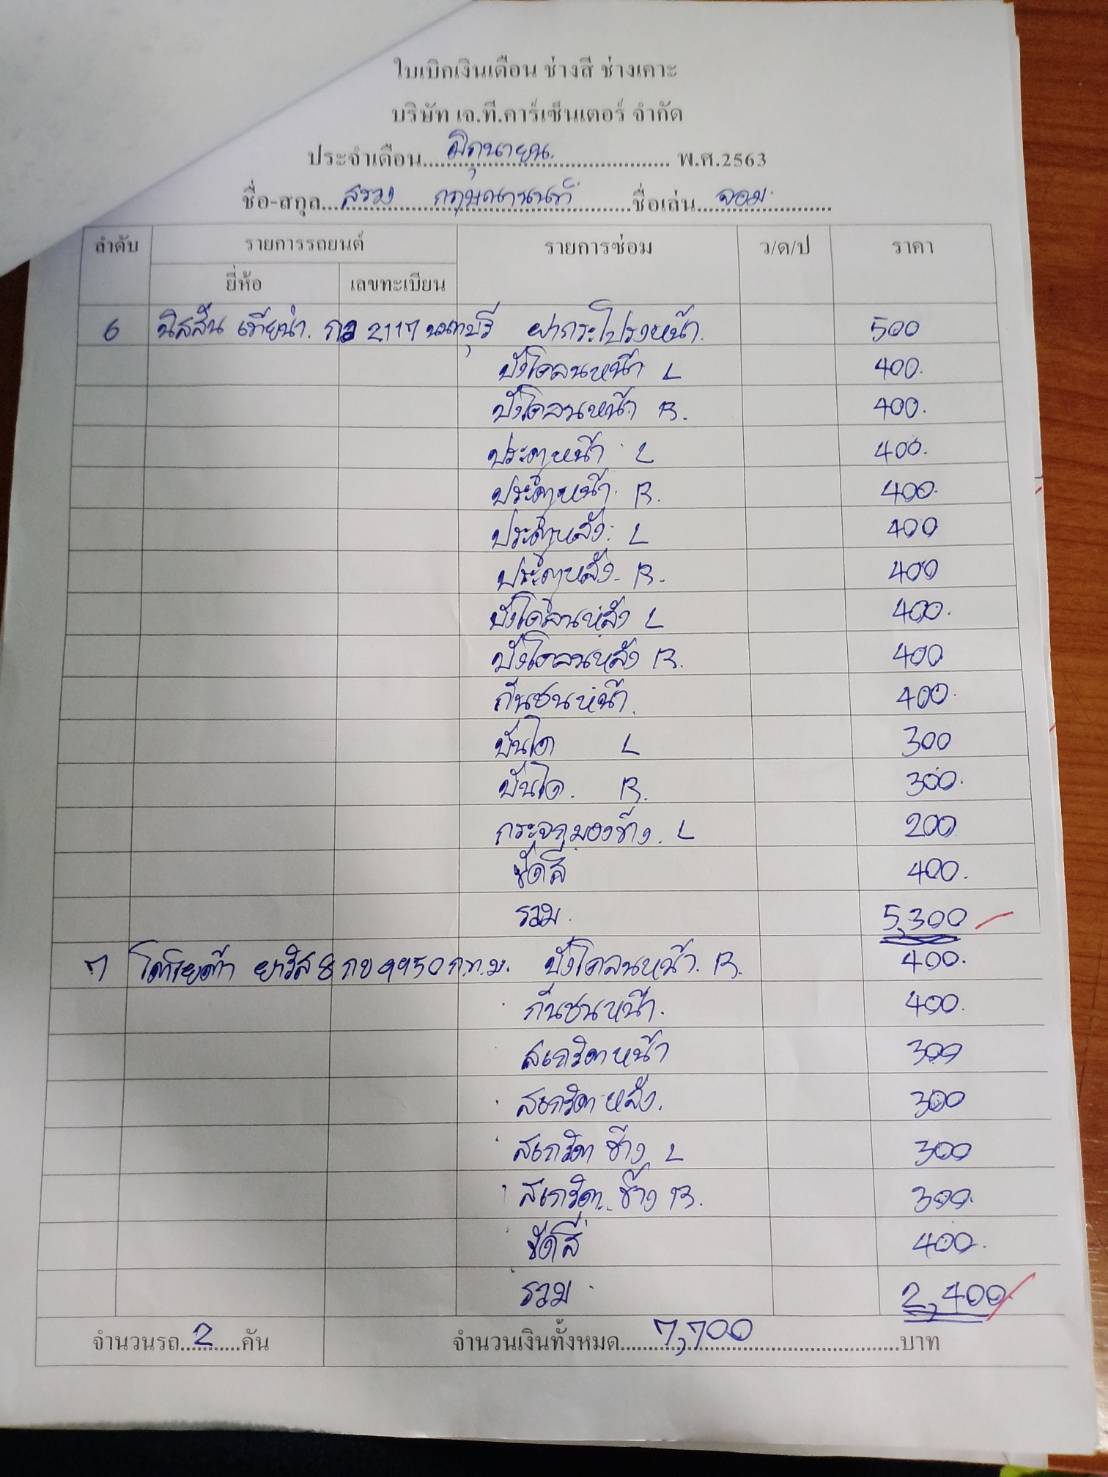 ใบเบิกเงินเดือน ช่างสี ช่างเคาะ
บริษัท เจ.ที.คาร์เซ็นเตอร์ จำกัด
ประจำเดือน....มิถุนายน.... พ.ศ.2563
ชื่อ-สกุล...สรวง กฤษณานนท์...ชื่อเล่น...จอม...
ลำดับ รายการรถยนต์ รายการซ่อม ว/ด/ป ราคา
ยี่ห้อ เลขทะเบียน
6 นิสสัน เทียน่า. 2117 นนทบุรี ฝากระโปรงหน้า. 500
บังโคลนหน้า L 400.
บังโคลนหน้า R. 400.
ประตูหน้า L 400.
ประตูหน้า. R. 400.
ประตูหลัง. L 400
ประตูหลัง. R. 400
บังโคลนหลัง L 400.
บังโคลนหลัง R. 400
กันชนหน้า. 400.
บันได L 300
บันได. R. 300.
กระจกมองข้าง. L 200
ขัดสี 400.
รวม. 5,300
7 โตโยต้า ยาริส 8 กข 9950 ก.ท.ม. บังโคลนหน้า. R. 400.
กันชนหน้า. 400.
สเกริตหน้า 300
สเกริตหลัง. 300
สเกริต ข้าง L 300
สเกริต ข้าง R. 300.
ขัดสี 400.
รวม. 2,400
จำนวนรถ..2..คัน จำนวนเงินทั้งหมด....7,700....บาท